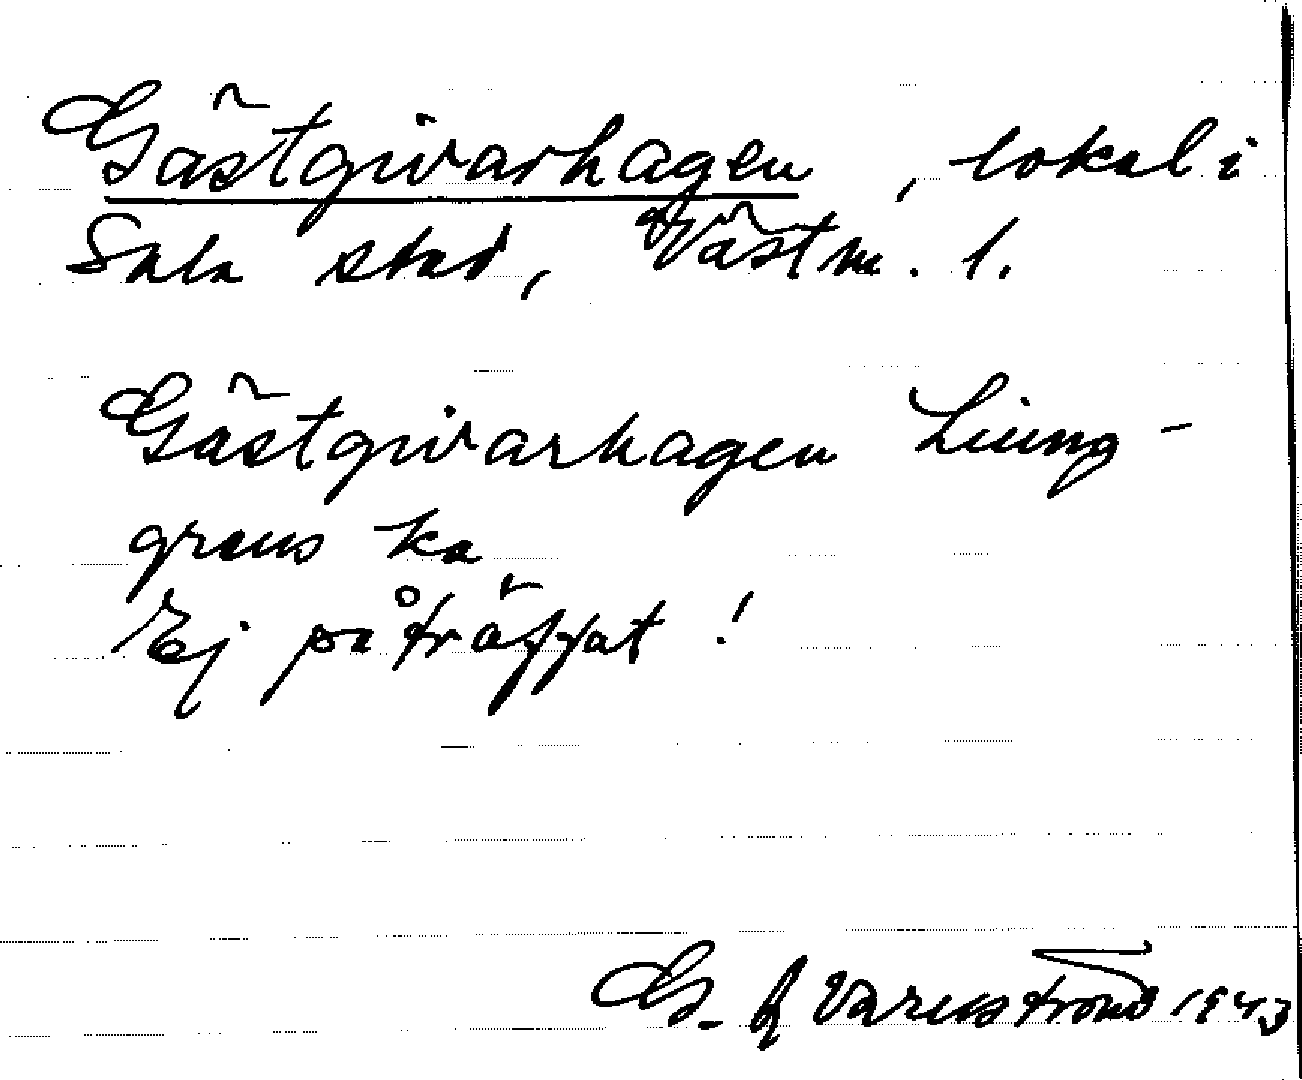 Gästgivarhagen, lokal i
Sala stad, Västm. l.
Gästgivarhagen Ljung-
grens ka
Ej påträffat!
G. A Varenström 1943